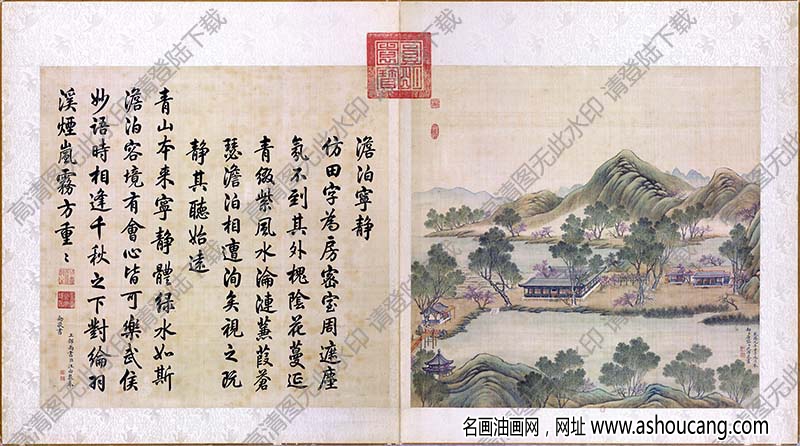 澹泊寧靜
仿田字為房密室周遮塵
氛不到其外槐陰花蔓延
青綴紫風水淪漣蒹葭蒼
瑟澹泊相遭洵矣視之既
靜其聽始遠
青山本來寧靜體綠水如斯
澹泊容境有會心皆可樂武侯
妙語時相逢千秋之下對綸羽
溪煙嵐霧方重〻
高清图无此水印 请登陆下载
名画油画网，网址 www.ashoucang.com